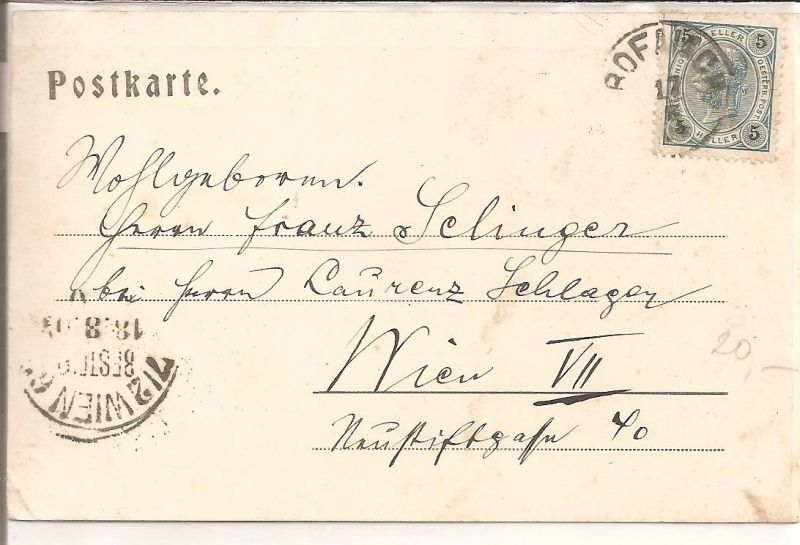 Postkarte.
5 HELLER 5
OESTERR. POST.
5 HELLER 5
Wohlgeboren.
Herrn Franz Selinger
bei Herrn Laurenz Schlager
Wien VII
Neustiftgasse 40
20,-
7/2 WIEN
BESTELLT
18.8